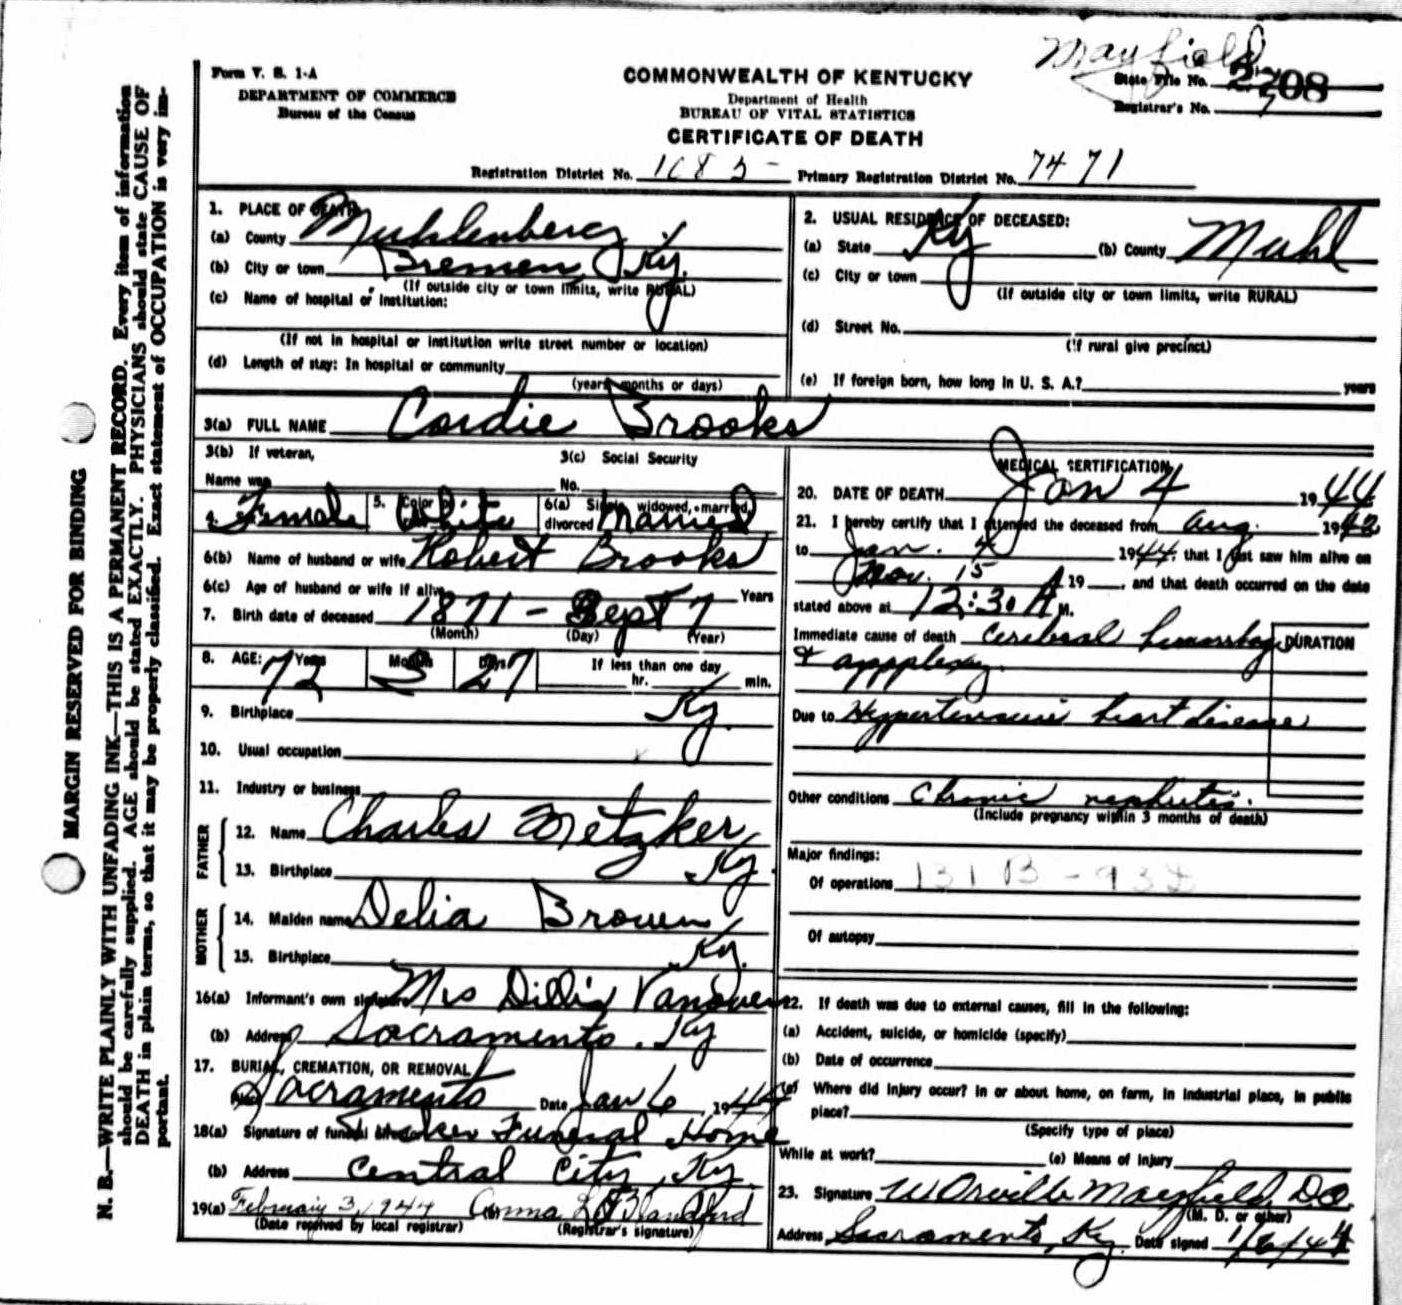 Mayfield
Form V. S. 1-A
DEPARTMENT OF COMMERCE
Bureau of the Census
COMMONWEALTH OF KENTUCKY
Department of Health
BUREAU OF VITAL STATISTICS
CERTIFICATE OF DEATH
State File No. 2708
Registrar's No. 7
Registration District No. 1085 Primary Registration District No. 7471
1. PLACE OF DEATH
(a) County Muhlenberg
(b) City or town Bremen, Ky.
(If outside city or town limits, write RURAL)
(c) Name of hospital or institution:
(If not in hospital or institution write street number or location)
(d) Length of stay: In hospital or community
(years months or days)
2. USUAL RESIDENCE OF DECEASED:
(a) State Ky (b) County Muhl
(c) City or town
(If outside city or town limits, write RURAL)
(d) Street No.
(If rural give precinct)
(e) If foreign born, how long in U. S. A.? years
3(a) FULL NAME Cordie Brooks
3(b) If veteran,
Name war
3(c) Social Security
No.
4. Female 5. Color White 6(a) Single, widowed, married, divorced Married
6(b) Name of husband or wife Robert Brooks
6(c) Age of husband or wife if alive Years
7. Birth date of deceased 1871 - Sept 7
(Month) (Day) (Year)
8. AGE: 72 Years 3 Months 27 Days If less than one day
hr. min.
9. Birthplace Ky.
10. Usual occupation
11. Industry or business
FATHER
12. Name Charles Metzker
13. Birthplace Ky.
MOTHER
14. Maiden name Delia Brown
15. Birthplace Ky.
16(a) Informant's own signature Mrs Dillie Vanover
(b) Address Sacramento. Ky
17. BURIAL, CREMATION, OR REMOVAL
Place Sacramento Date Jan 6, 1944
18(a) Signature of funeral director Tucker Funeral Home
(b) Address Central City, Ky.
19(a) February 3, 1944 (b) Anna L. Blandford
(Date received by local registrar) (Registrar's signature)
MEDICAL CERTIFICATION
20. DATE OF DEATH Jan 4 1944
21. I hereby certify that I attended the deceased from Aug. 1942
to Jan. 4 1944, that I last saw him alive on
Nov. 15 19 , and that death occurred on the date
stated above at 12:30 A M.
Immediate cause of death Cerebral hemorrhage DURATION
& apoplexy.
Due to Hypertensive heart disease
Other conditions Chronic nephritis.
(Include pregnancy within 3 months of death)
Major findings:
Of operations 131 B - 93D
Of autopsy
22. If death was due to external causes, fill in the following:
(a) Accident, suicide, or homicide (specify)
(b) Date of occurrence
(c) Where did injury occur? In or about home, on farm, in industrial place, in public
place?
(Specify type of place)
While at work? (e) Means of injury
23. Signature W Orville Mayfield D.O.
(M. D. or other)
Address Sacramento, Ky. Date signed 1/6/44
MARGIN RESERVED FOR BINDING
N. B.—WRITE PLAINLY WITH UNFADING INK—THIS IS A PERMANENT RECORD. Every item of information
should be carefully supplied. AGE should be stated EXACTLY. PHYSICIANS should state CAUSE OF
DEATH in plain terms, so that it may be properly classified. Exact statement of OCCUPATION is very im-
portant.